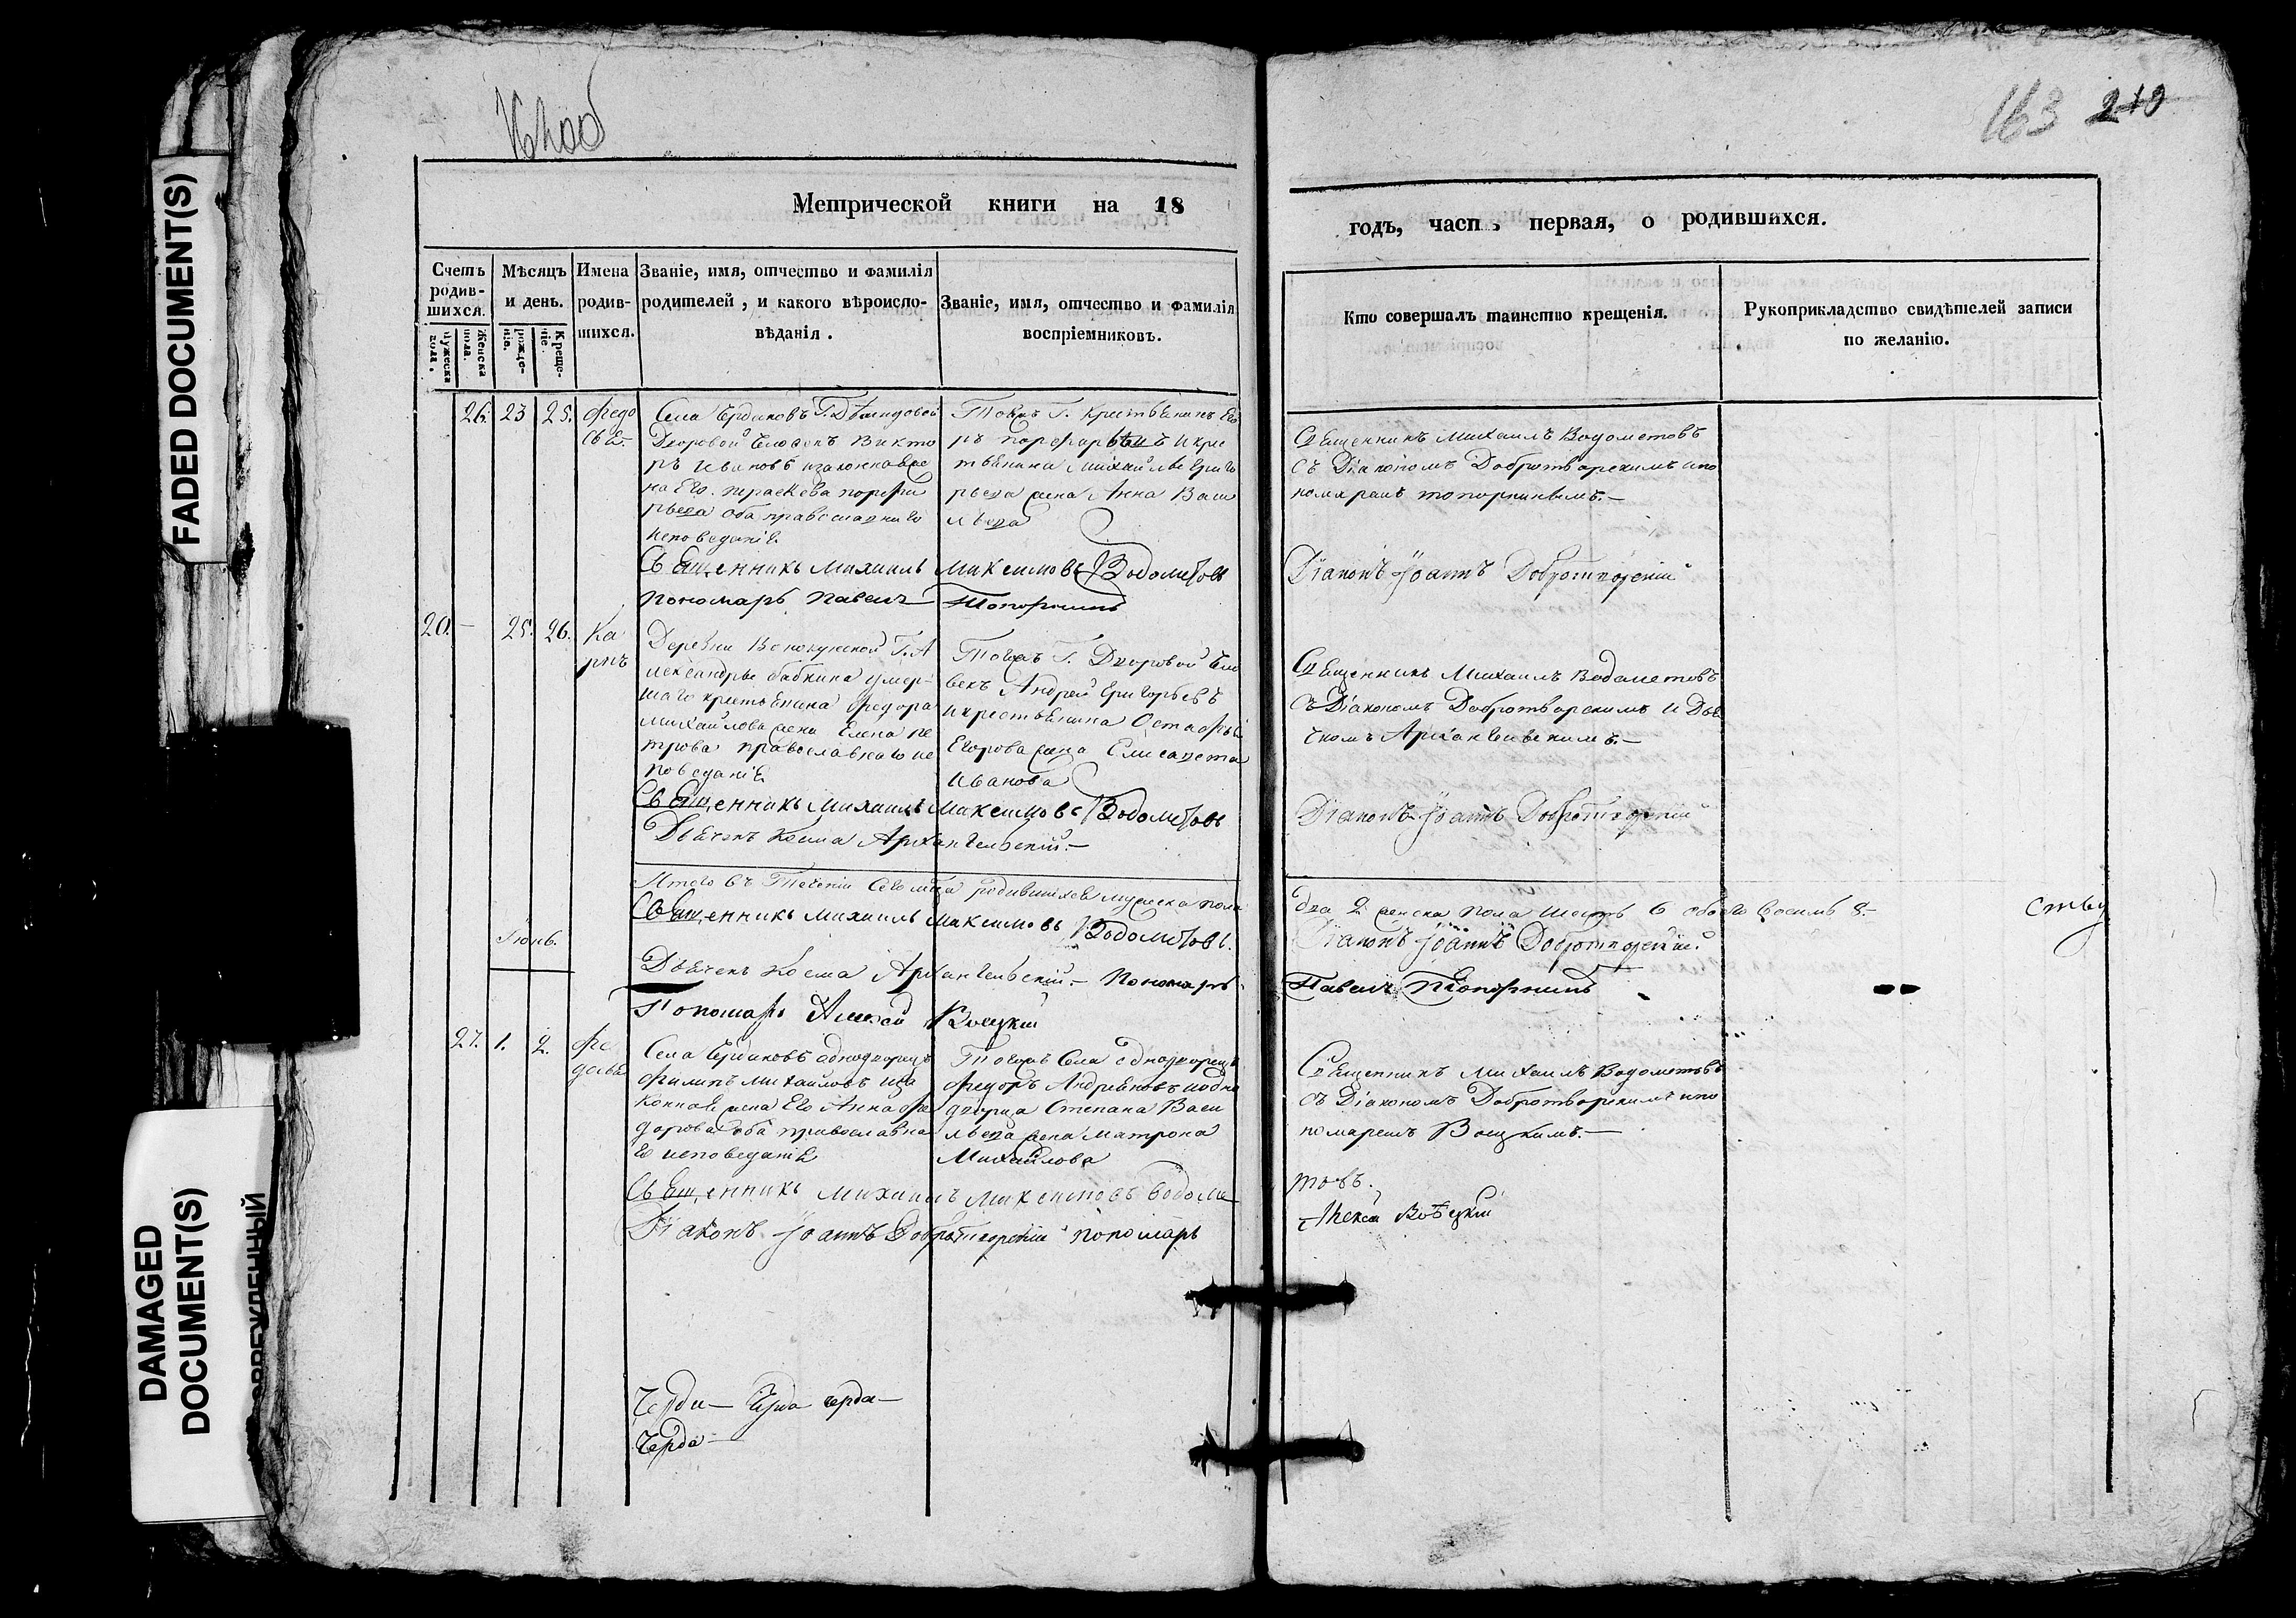 FADED DOCUMENT(S)
DAMAGED
DOCUMENT(S)
163 210
Метрической книги на 18
годъ, часть первая, о родившихся.
Счетъ родив-шихся.
Мужеска пола.
Женска пола.
Мѣсяцъ и день.
рожде-нія.
Креще-нія.
Имена родив-шихся.
Званіе, имя, отчество и фамилія родителей, и какого вѣроиспо-вѣданія.
Званіе, имя, отчество и фамилія воспріемниковъ.
Кто совершалъ таинство крещенія.
Рукоприкладство свидѣтелей записи по желанію.
26. 23 25.
Федо
сья
Села Ердаковъ Г.
Дворовой Человекъ Викто
ръ Ивановъ изаконная же
на Его Праскева порфи
рьева оба православнаго
исповеданiя
Тогожъ Г. Крестьянинъ Его
ръ и крес
тьянина Михайлы Григо
рьева жена Анна Васи
льева
Священникъ Михаилъ Водометовъ
съ Діакономъ Добротворскимъ и по
номаремъ топорнинымъ.-
Священникъ Михаилъ Максимовъ Водометовъ
Діаконъ Іоаннъ Добротворскій
пономарь Павелъ Топорнинъ
20.- 25. 26.
Ка
рпъ
Деревни Г. А
лександры бабкина умер-
шаго крестьянина Федора
Михайлова жена Елена пе
трова православнаго ис
поведанiя
Тогожъ Г. Дворовой Чело
векъ Андрей Григорьевъ
и крестьянина Остафья
Егорова жена Елисавета
Иванова
Священникъ Михаилъ Водометовъ
съ Діакономъ Добротворскимъ и Дья
чкомъ Архангельскимъ.-
Священникъ Михаилъ Максимовъ Водометовъ
Діаконъ Іоаннъ Добротворскій
Дьячекъ Косма Архангельскій.-
Итого въ Теченiи сего мѣсяца родившихся мужеска пола
два 2 женска пола шесть 6 обоего восемь 8.-
ству
Священникъ Михаилъ Максимовъ Водометовъ.
Діаконъ Іоаннъ Добротворскій.
Іюнь.
Дьячекъ Косма Архангельскій.- Пономарь
Павелъ Топорнинъ
Пономарь Алексей Воецкій
27. 1. 2.
Фе
досья
Села Ердаковъ однодворецъ
Филипъ Михайловъ иза
конная жена Его Анна Фе
дорова оба православна
го исповеданiя
Тогожъ Села однодворецъ
Федоръ Андреяновъ и одно
дворца Степана Васи
льева жена Матрона
Михайлова
Священникъ Михаилъ Водометовъ
съ Діакономъ Добротворскимъ и по
номаремъ Воецкимъ.-
Священникъ Михаилъ Максимовъ Водоме
товъ.
Діаконъ Іоаннъ Добротворскій Пономарь
Алексей Воецкій